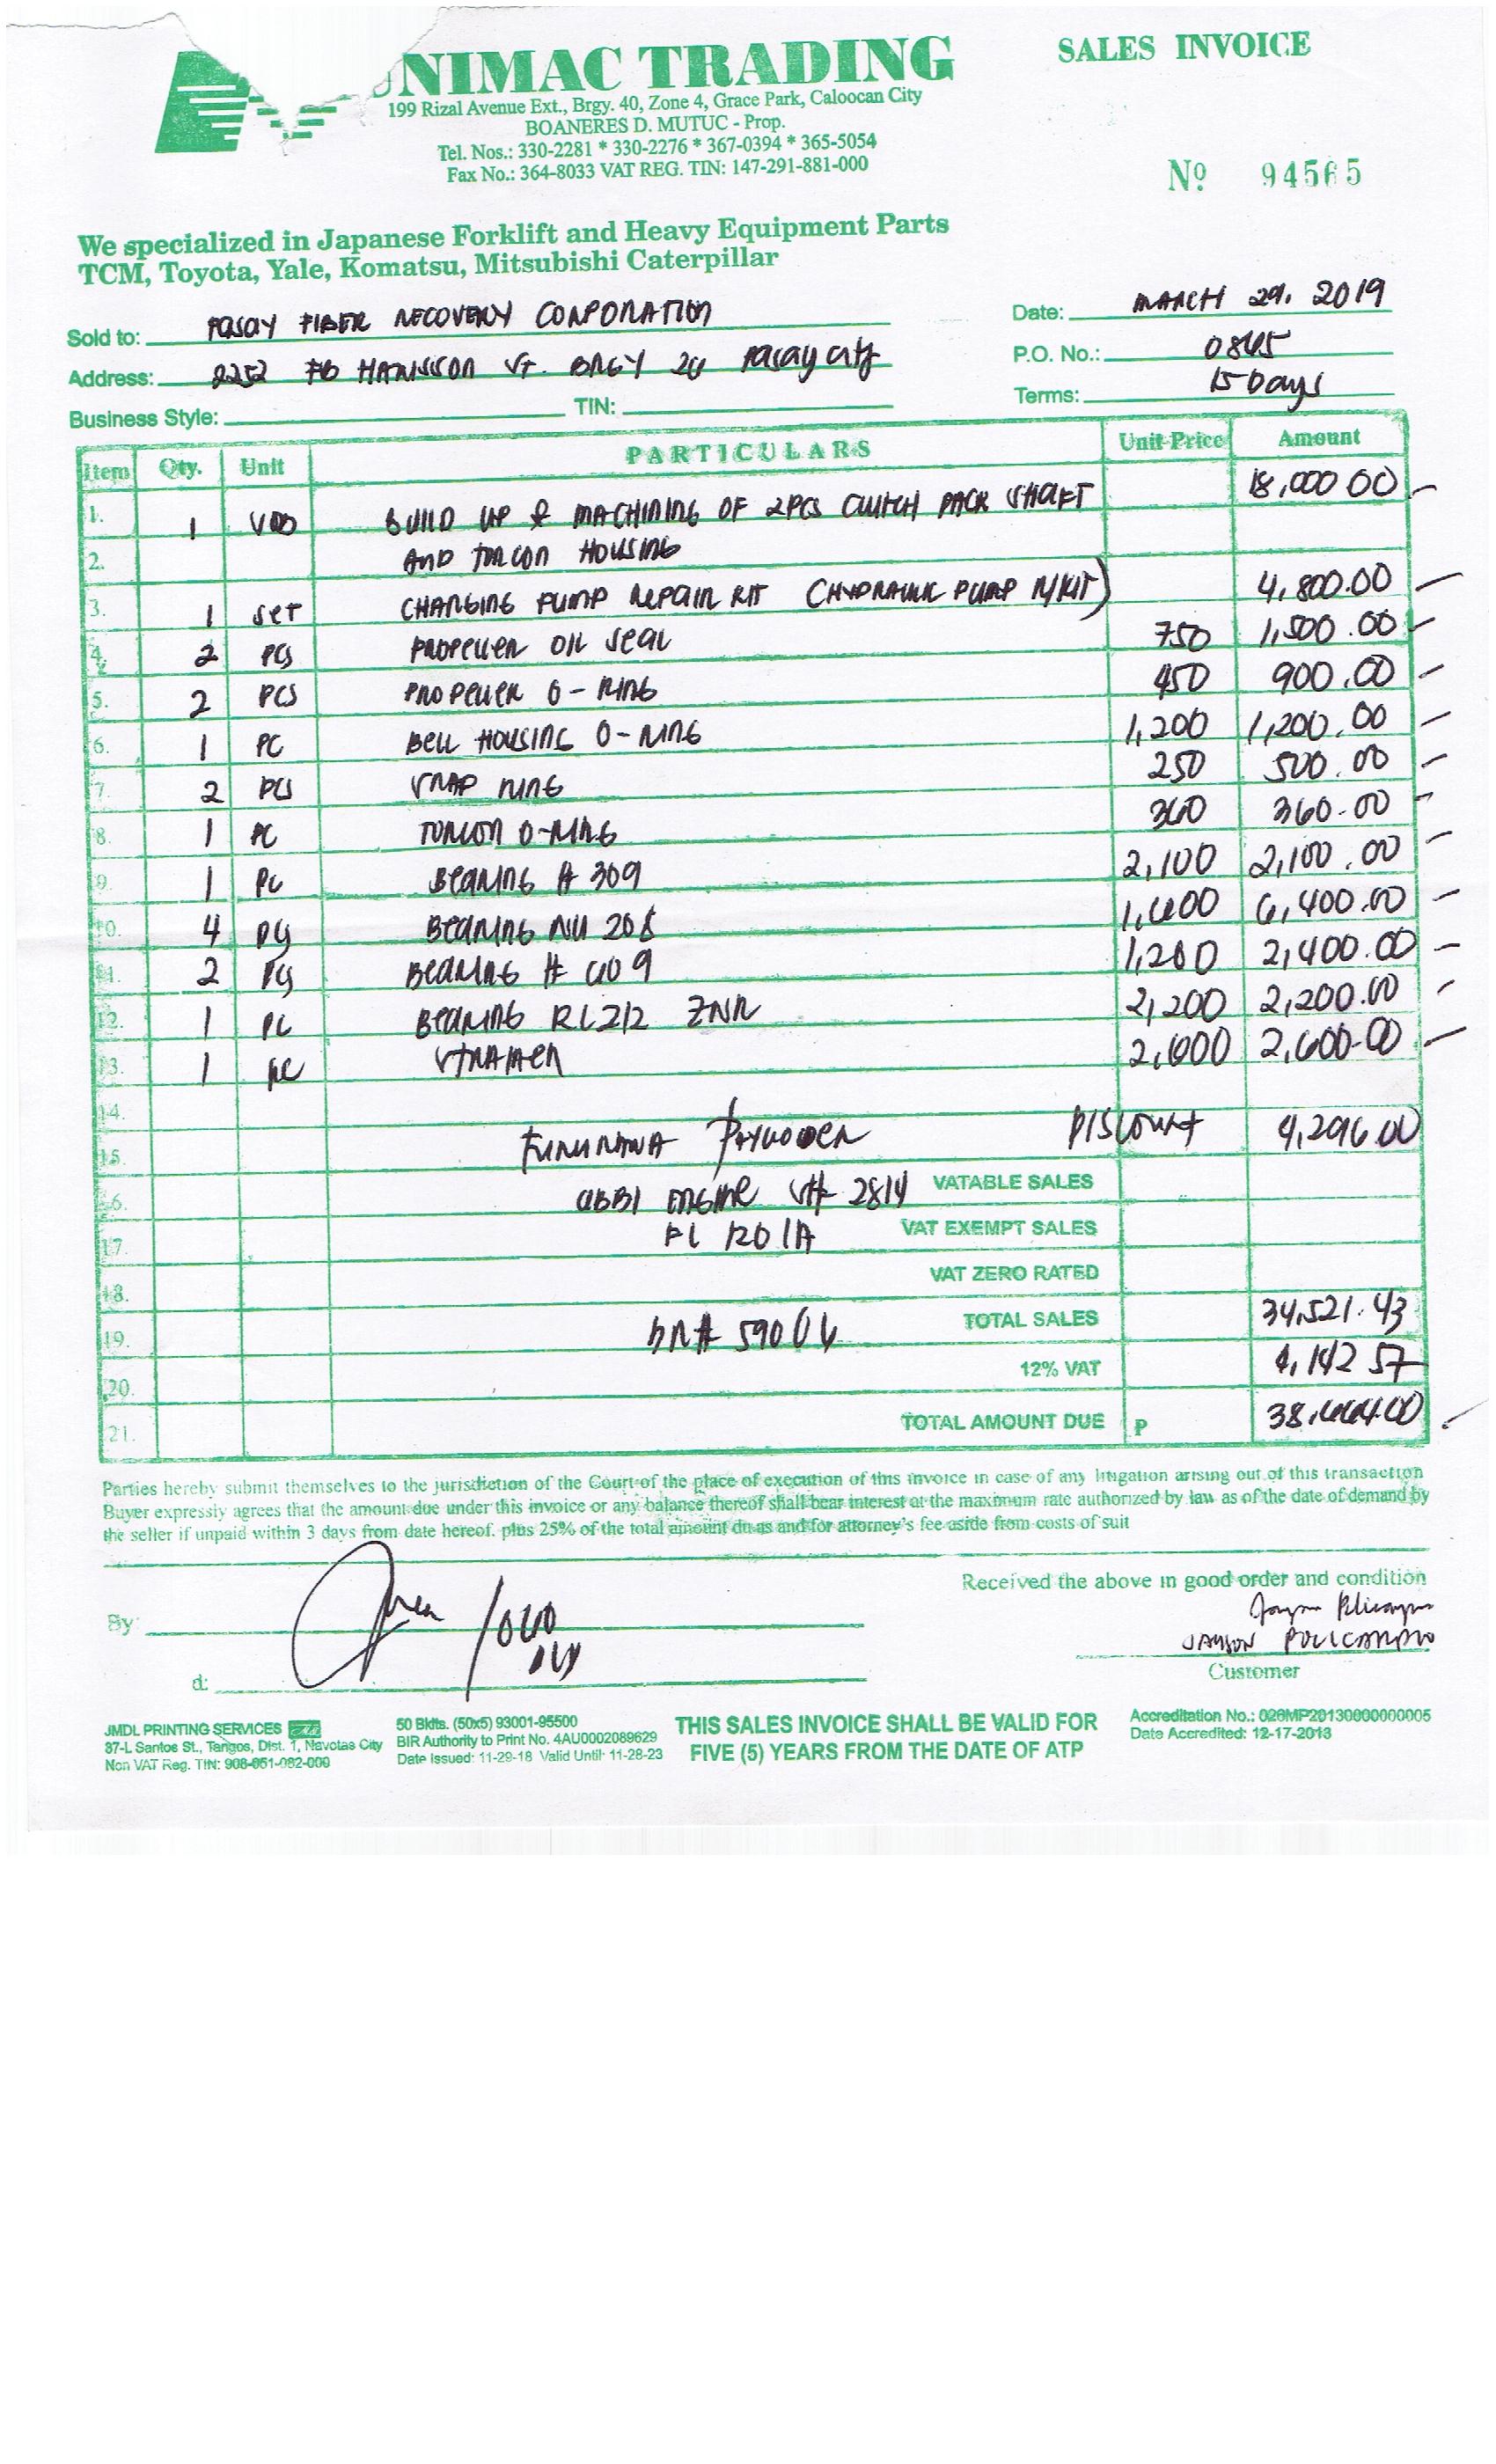 UNIMAC TRADING
SALES INVOICE
199 Rizal Avenue Ext., Brgy. 40, Zone 4, Grace Park, Caloocan City
BOANERES D. MUTUC - Prop.
Tel. Nos.: 330-2281 * 330-2276 * 367-0394 * 365-5054
Fax No.: 364-8033 VAT REG. TIN: 147-291-881-000
Nº 94565
We specialized in Japanese Forklift and Heavy Equipment Parts
TCM, Toyota, Yale, Komatsu, Mitsubishi Caterpillar
Sold to: PASAY FIBER RECOVERY CORPORATION Date: MARCH 29, 2019
Address: 2252 FB HARISSON ST. BRGY Pasay city P.O. No.:
Business Style: TIN: Terms: 15 Days
Item Qty. Unit PARTICULARS Unit Price Amount
1. 1 BUILD UP & MACHINING OF 2PCS CLUTCH PACK SHAFT 18,000 00
2. AND TORCON HOUSING
3. 1 SET CHARGING PUMP REPAIR KIT (HYDRAULIC PUMP R/KIT) 4,800.00
4. 2 PCS PROPELLER OIL SEAL 750 1,500.00
5. 2 PCS PROPELLER O-RING 450 900.00
6. 1 PC BELL HOUSING O-RING 1,200 1,200.00
7. 2 PCS SNAP RING 250 500.00
8. 1 PC TORCON O-RING 360 360.00
9. 1 PC BEARING # 309 2,100 2,100.00
10. 4 PCS BEARING NU 208 1,600 6,400.00
11. 2 PCS BEARING # 1,200 2,400.00
12. 1 PC BEARING ZNR 2,200 2,200.00
13. 1 PC STRAINER 2,600 2,600.00
14.
15. FURUKAWA PAYLOADER DISCOUNT 4,296.00
16. ENGINE S# 2814 VATABLE SALES
17. FL 120 1A VAT EXEMPT SALES
18. VAT ZERO RATED
19. DR# TOTAL SALES 34,521.43
20. 12% VAT 4,142 57
21. TOTAL AMOUNT DUE P 38,664.00
Parties hereby submit themselves to the jurisdiction of the Court of the place of execution of this invoice in case of any litigation arising out of this transaction
Buyer expressly agrees that the amount due under this invoice or any balance thereof shall bear interest at the maximum rate authorized by law as of the date of demand by
the seller if unpaid within 3 days from date hereof. plus 25% of the total amount du as and for attorney's fee aside from costs of suit
Received the above in good order and condition
By:
JAYSON POLICARPIO
d:
Customer
JMDL PRINTING SERVICES
87-L Santos St., Tangos, Dist. 1, Navotas City
Non VAT Reg. TIN: 908-851-082-000
50 Bklts. (50x5) 93001-95500
BIR Authority to Print No. 4AU0002089629
Date Issued: 11-29-18 Valid Until: 11-28-23
THIS SALES INVOICE SHALL BE VALID FOR
FIVE (5) YEARS FROM THE DATE OF ATP
Accreditation No.: 026MP20130000000005
Date Accredited: 12-17-2013